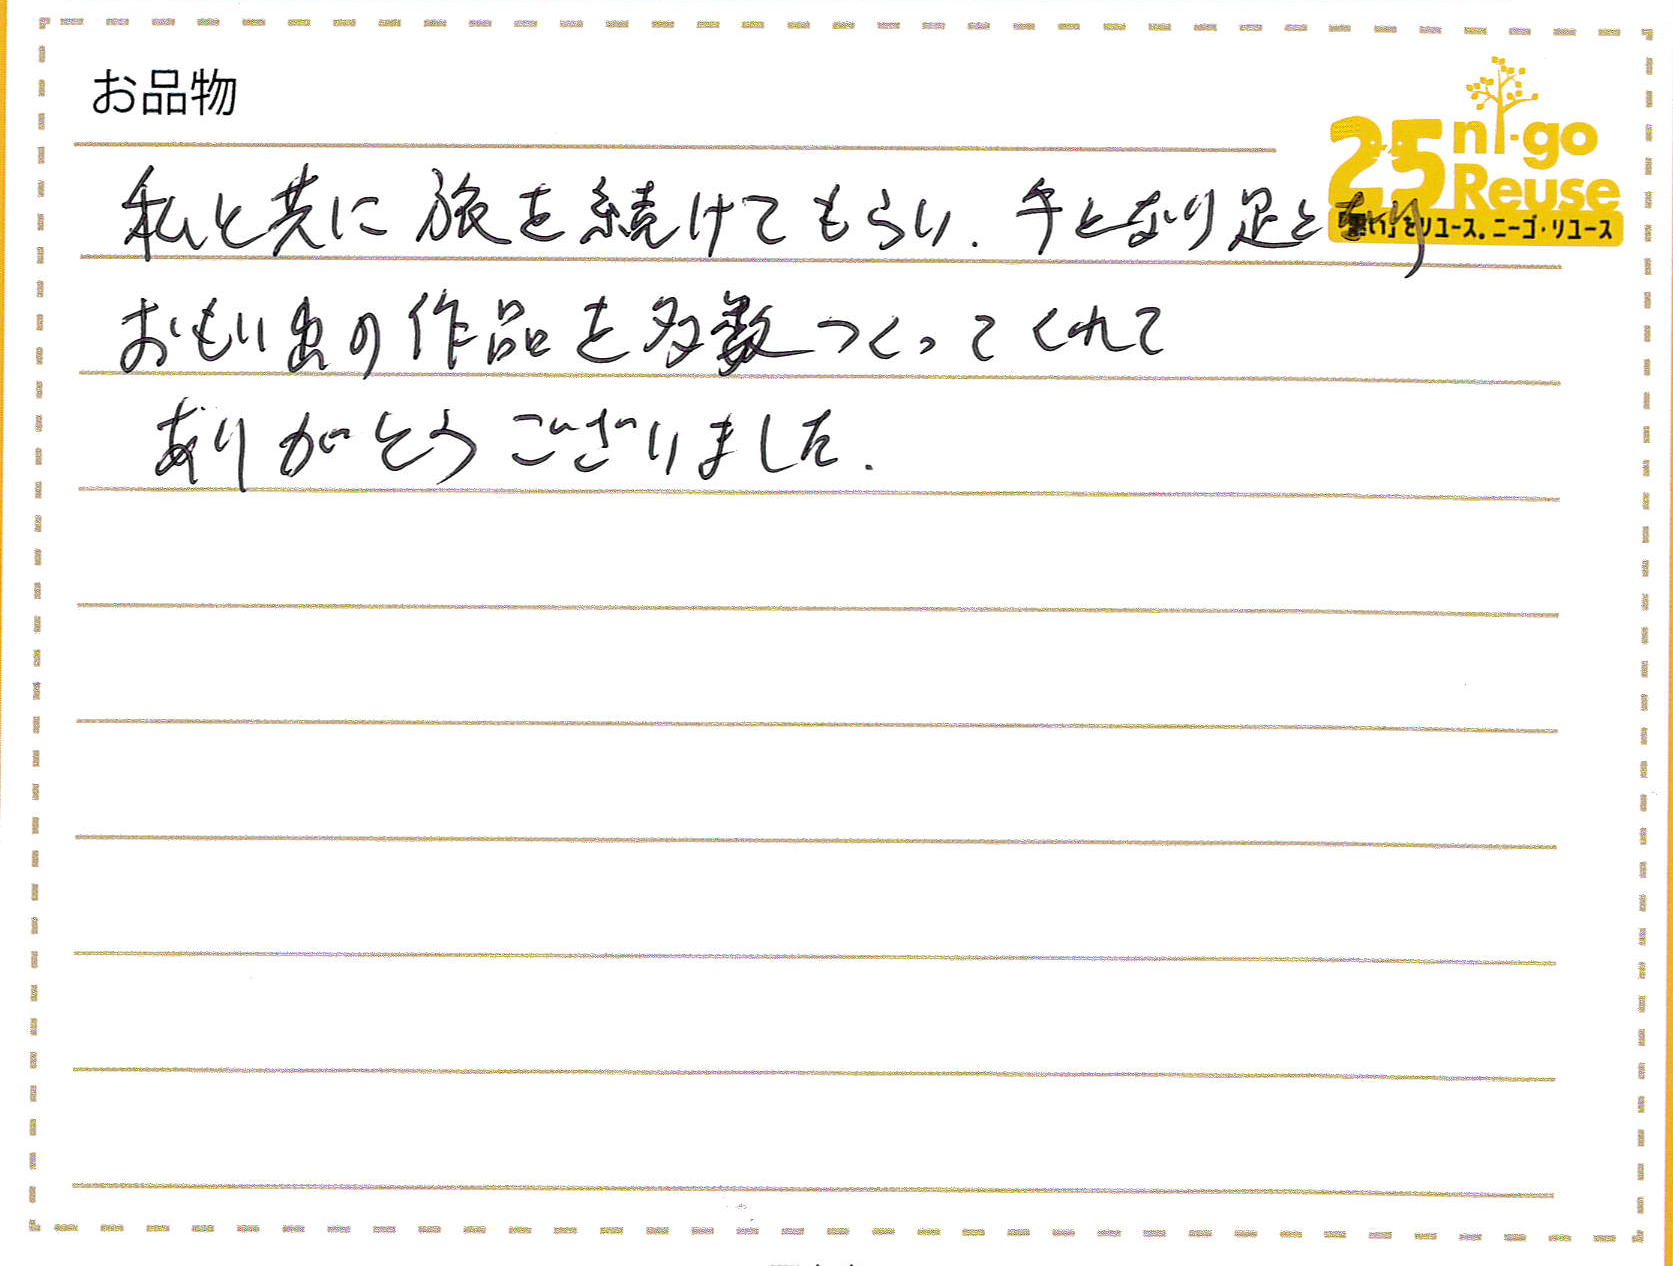 お品物
25 ni-go
Reuse
をリユース。ニーゴ・リユース
私と共に旅を続けてもらい. 手となり足となり
おもい出の作品を多数つくってくれて
ありがとうございました.